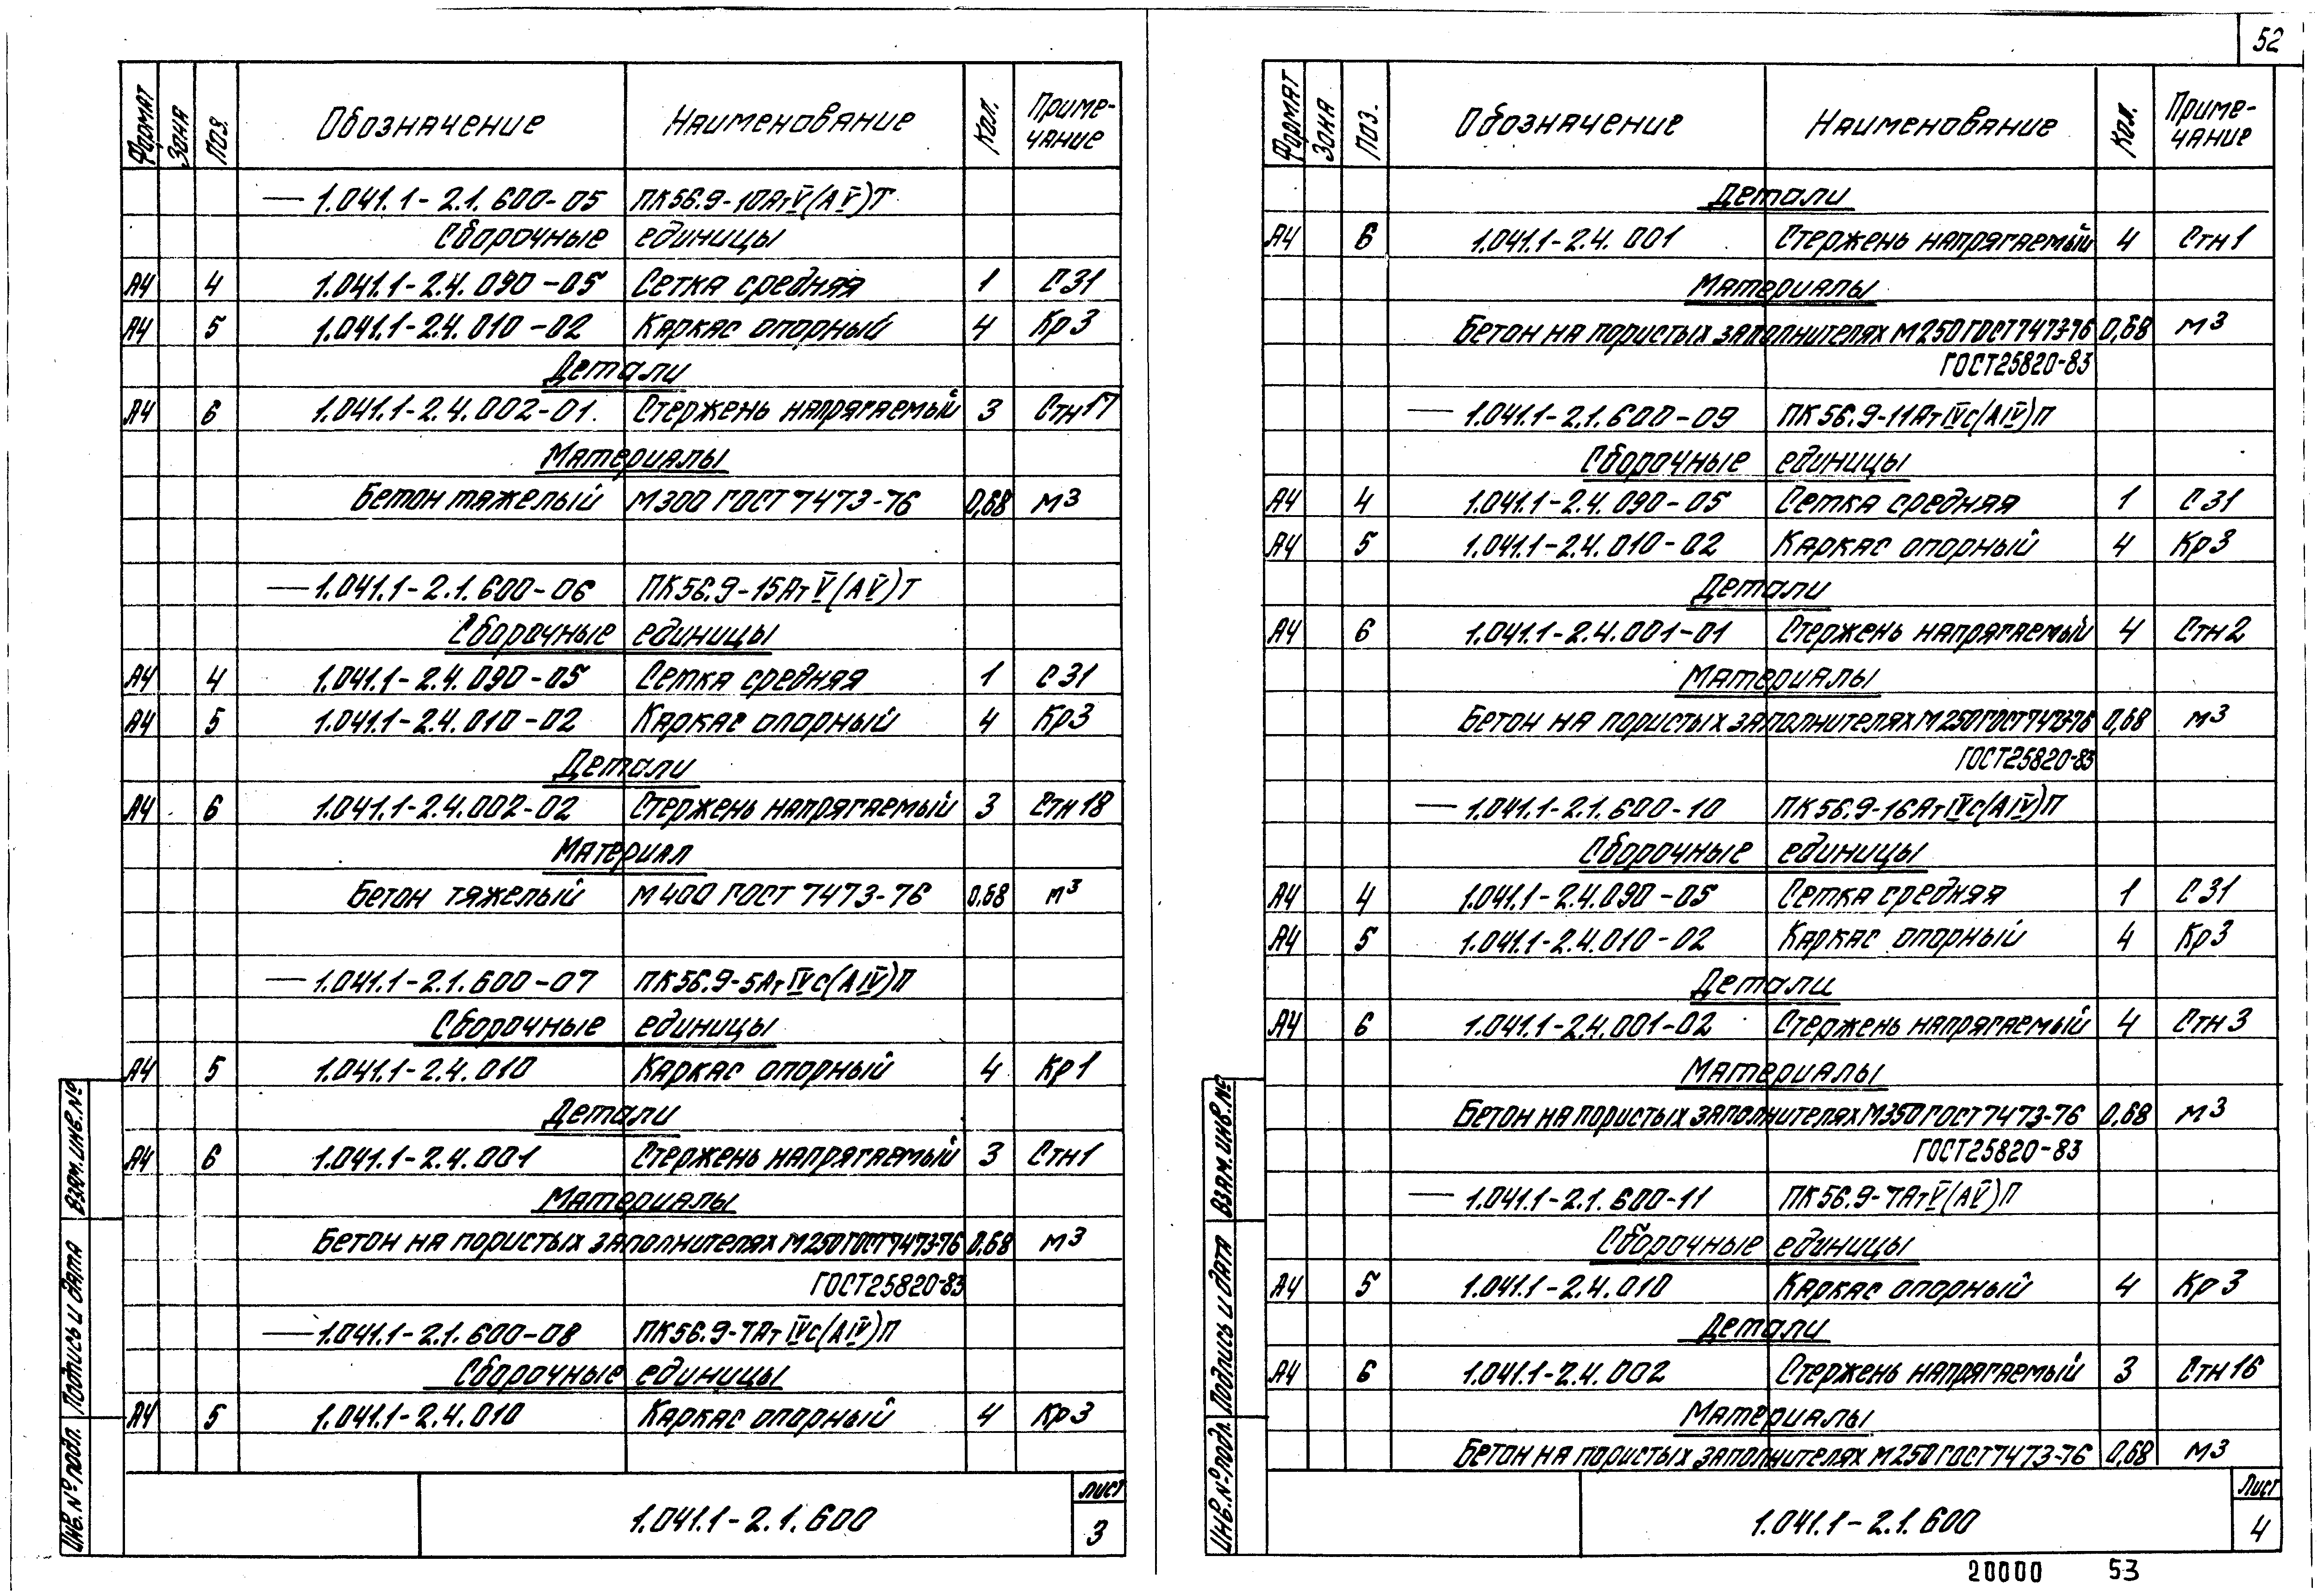 52
Формат Зона Поз. Обозначение Наименование Кол. Приме-
чание
— 1.041.1-2.1.600-05 ПК56.9-10АтV(АV)Т
Сборочные единицы
А4 4 1.041.1-2.4.090-05 Сетка средняя 1 С31
А4 5 1.041.1-2.4.010-02 Каркас опорный 4 Кр3
Детали
А4 6 1.041.1-2.4.002-01. Стержень напрягаемый 3 Стн17
Материалы
Бетон тяжелый М300 ГОСТ 7473-76 0,68 м3
— 1.041.1-2.1.600-06 ПК56.9-15АтV(АV)Т
Сборочные единицы
А4 4 1.041.1-2.4.090-05 Сетка средняя 1 С31
А4 5 1.041.1-2.4.010-02 Каркас опорный 4 Кр3
Детали
А4 6 1.041.1-2.4.002-02 Стержень напрягаемый 3 Стн18
Материал
Бетон тяжелый М400 ГОСТ 7473-76 0,68 м3
— 1.041.1-2.1.600-07 ПК56.9-5АтIVс(АIV)П
Сборочные единицы
А4 5 1.041.1-2.4.010 Каркас опорный 4 Кр1
Детали
А4 6 1.041.1-2.4.001 Стержень напрягаемый 3 Стн1
Материалы
Бетон на пористых заполнителях М250 ГОСТ7473-76 0,68 м3
ГОСТ25820-83
— 1.041.1-2.1.600-08 ПК56.9-7АтIVс(АIV)П
Сборочные единицы
А4 5 1.041.1-2.4.010 Каркас опорный 4 Кр3
Инв.№ подл. Подпись и дата Взам.инв.№
1.041.1-2.1.600
Лист
3
Формат Зона Поз. Обозначение Наименование Кол. Приме-
чание
Детали
А4 6 1.041.1-2.4.001 Стержень напрягаемый 4 Стн1
Материалы
Бетон на пористых заполнителях М250 ГОСТ7473-76 0,68 м3
ГОСТ25820-83
— 1.041.1-2.1.600-09 ПК56.9-11АтIVс(АIV)П
Сборочные единицы
А4 4 1.041.1-2.4.090-05 Сетка средняя 1 С31
А4 5 1.041.1-2.4.010-02 Каркас опорный 4 Кр3
Детали
А4 6 1.041.1-2.4.001-01 Стержень напрягаемый 4 Стн2
Материалы
Бетон на пористых заполнителях М250 ГОСТ7473-76 0,68 м3
ГОСТ25820-83
— 1.041.1-2.1.600-10 ПК56.9-16АтIVс(АIV)П
Сборочные единицы
А4 4 1.041.1-2.4.090-05 Сетка средняя 1 С31
А4 5 1.041.1-2.4.010-02 Каркас опорный 4 Кр3
Детали
А4 6 1.041.1-2.4.001-02 Стержень напрягаемый 4 Стн3
Материалы
Бетон на пористых заполнителях М350 ГОСТ7473-76 0,68 м3
ГОСТ25820-83
— 1.041.1-2.1.600-11 ПК56.9-7АтV(АV)П
Сборочные единицы
А4 5 1.041.1-2.4.010 Каркас опорный 4 Кр3
Детали
А4 6 1.041.1-2.4.002 Стержень напрягаемый 3 Стн16
Материалы
Бетон на пористых заполнителях М250 ГОСТ7473-76 0,68 м3
Инв.№ подл. Подпись и дата Взам.инв.№
1.041.1-2.1.600
Лист
4
20000 53